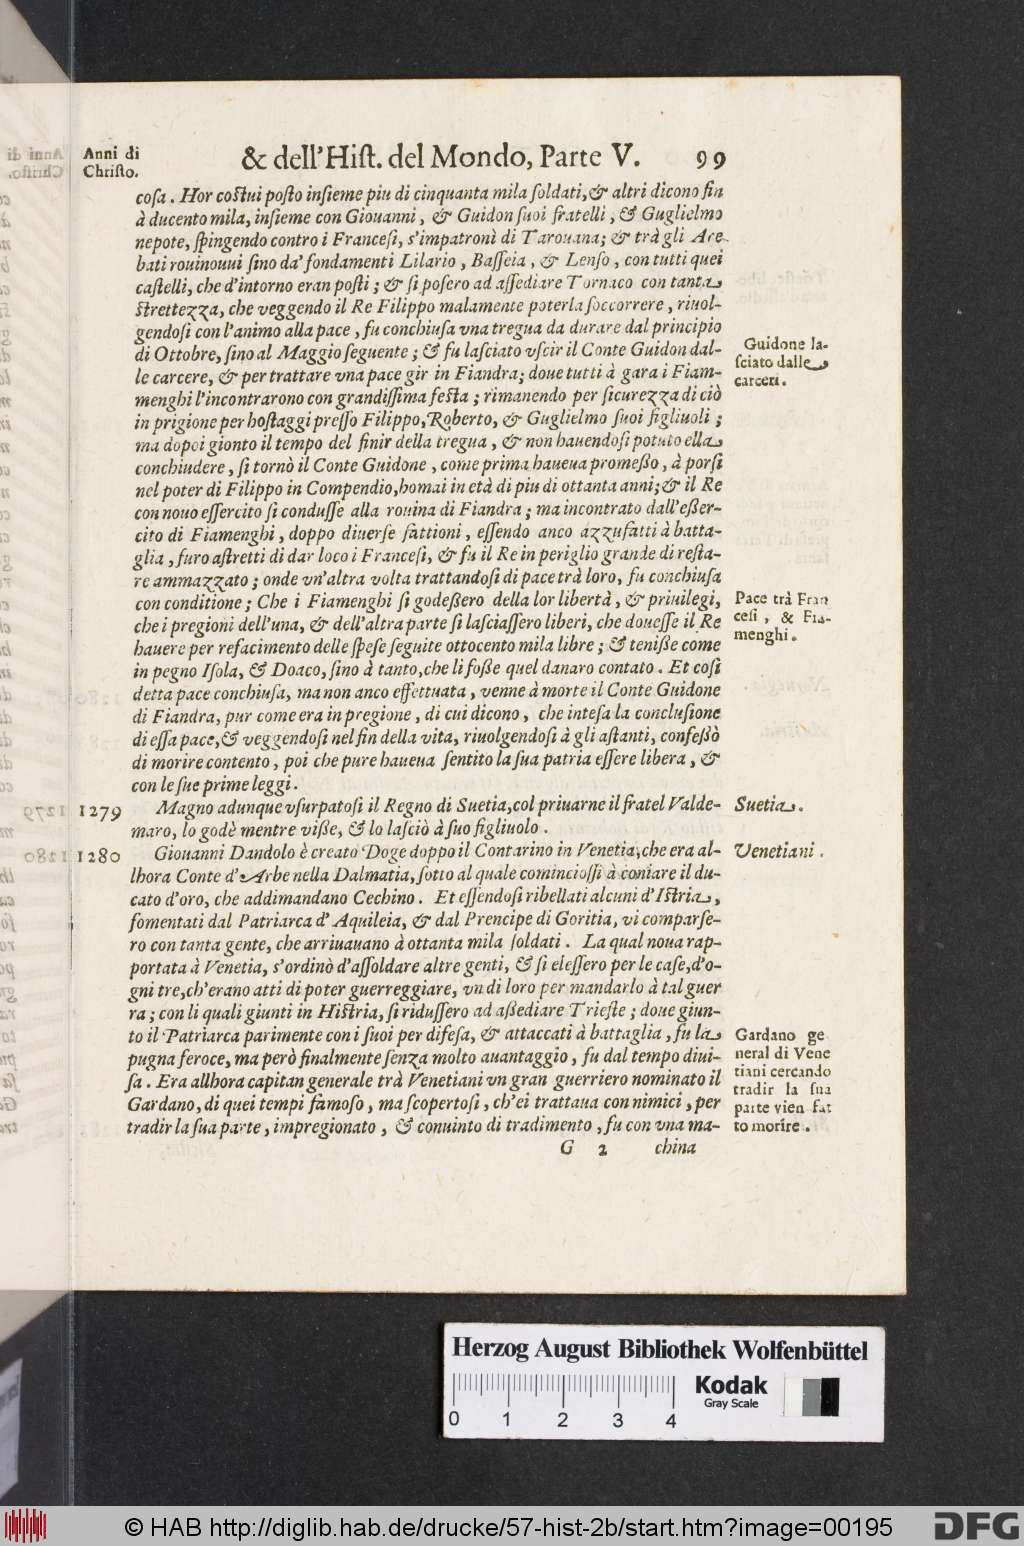 Anni di
Christo.
& dell'Hist. del Mondo, Parte V. 99
cosa. Hor costui posto insieme piu di cinquanta mila soldati, & altri dicono fin
à ducento mila, insieme con Giouanni, & Guidon suoi fratelli, & Guglielmo
nepote, spingendo contro i Francesi, s'impatronì di Tarouana; & trà gli Are-
bati rouinouui sino da' fondamenti Lilario, Basseia, & Lenso, con tutti quei
castelli, che d'intorno eran posti; & si posero ad assediare Tornaco con tanta
strettezza, che veggendo il Re Filippo malamente poterla soccorrere, riuol-
gendosi con l'animo alla pace, fu conchiusa vna tregua da durare dal principio
di Ottobre, sino al Maggio seguente; & fu lasciato vscir il Conte Guidon dal-
le carcere, & per trattare vna pace gir in Fiandra; doue tutti à gara i Fiam-
menghi l'incontrarono con grandissima festa; rimanendo per sicurezza di ciò
in prigione per hostaggi presso Filippo, Roberto, & Guglielmo suoi figliuoli;
ma dopoi gionto il tempo del finir della tregua, & non hauendosi potuto ella
conchiudere, si tornò il Conte Guidone, come prima haueua promesso, à porsi
nel poter di Filippo in Compendio, homai in età di piu di ottanta anni; & il Re
con nouo essercito si condusse alla rouina di Fiandra; ma incontrato dall'esser-
cito di Fiamenghi, doppo diuerse fattioni, essendo anco azzufatti à batta-
glia, furo astretti di dar loco i Francesi, & fu il Re in periglio grande di resta-
re ammazzato; onde vn'altra volta trattandosi di pace trà loro, fu conchiusa
con conditione; Che i Fiamenghi si godessero della lor libertà, & priuilegi,
che i pregioni dell'una, & dell'altra parte si lasciassero liberi, che douesse il Re
hauere per refacimento delle spese seguite ottocento mila libre; & tenisse come
in pegno Isola, & Doaco, sino à tanto, che li fosse quel danaro contato. Et così
detta pace conchiusa, ma non anco effettuata, venne à morte il Conte Guidone
di Fiandra, pur come era in pregione, di cui dicono, che intesa la conclusione
di essa pace, & veggendosi nel fin della vita, riuolgendosi à gli astanti, confessò
di morire contento, poi che pure haueua sentito la sua patria essere libera, &
con le sue prime leggi.
Guidone la-
sciato dalle
carceri.
Pace trà Fran
cesi, & Fia-
menghi.
1279 Magno adunque vsurpatosi il Regno di Suetia, col priuarne il fratel Valde-
maro, lo godè mentre visse, & lo lasciò à suo figliuolo.
Suetia.
1280 Giouanni Dandolo è creato Doge doppo il Contarino in Venetia, che era al-
lhora Conte d'Arbe nella Dalmatia, sotto al quale cominciossi à coniare il du-
cato d'oro, che addimandano Cechino. Et essendosi ribellati alcuni d'Istria,
fomentati dal Patriarca d'Aquileia, & dal Prencipe di Goritia, vi comparse-
ro con tanta gente, che arriuauano à ottanta mila soldati. La qual noua rap-
portata à Venetia, s'ordinò d'assoldare altre genti, & si elessero per le case, d'o-
gni tre, ch'erano atti di poter guerreggiare, vn di loro per mandarlo à tal guer
ra; con li quali giunti in Histria, si ridussero ad assediare Trieste; doue giun-
to il Patriarca parimente con i suoi per difesa, & attaccati à battaglia, fu la
pugna feroce, ma però finalmente senza molto auantaggio, fu dal tempo diui-
sa. Era allhora capitan generale trà Venetiani vn gran guerriero nominato il
Gardano, di quei tempi famoso, ma scopertosi, ch'ei trattaua con nimici, per
tradir la sua parte, impregionato, & conuinto di tradimento, fu con vna ma-
Venetiani.
Gardano ge
neral di Vene
tiani cercando
tradir la sua
parte vien fat
to morire.
G 2 china
Herzog August Bibliothek Wolfenbüttel
0 1 2 3 4
Kodak
Gray Scale
© HAB http://diglib.hab.de/drucke/57-hist-2b/start.htm?image=00195
DFG